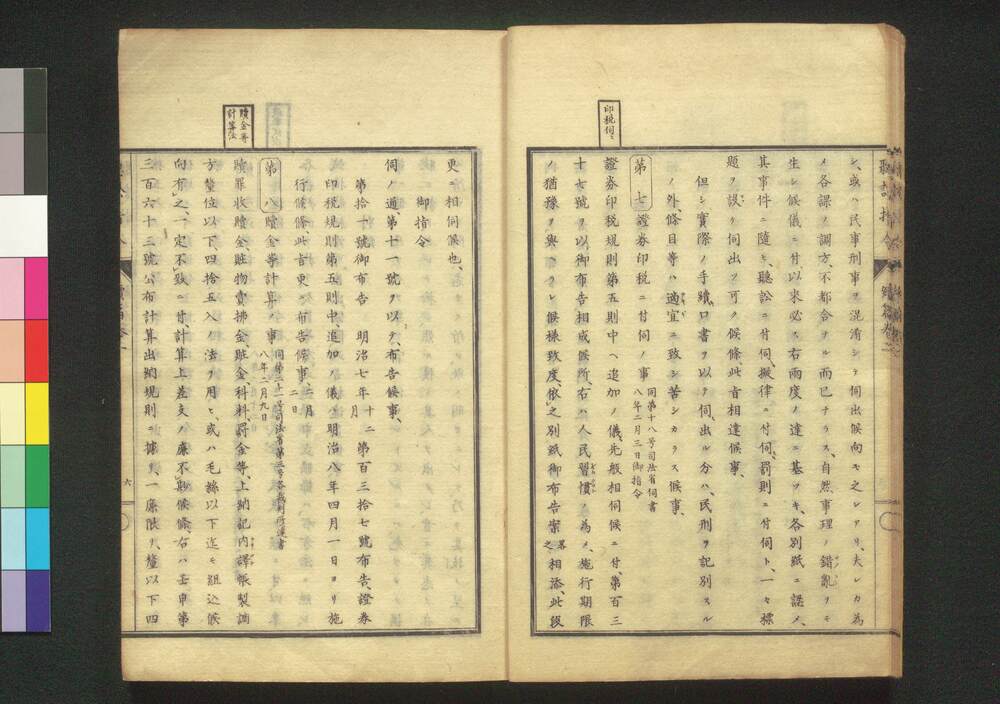 シ、或ハ民事刑事ヲ混淆シテ伺出候向モ之レアリ、夫レカ為
メ各課ノ調方、不都合ナル而已ナラス、自然事理ノ錯亂ヲモ
生シ候儀ニ付以來必ス右兩度ノ達ニ基ツキ、各別紙ニ謀メ、
其事件ニ隨ヒ聽訟ニ付伺、擬律ニ付伺、罰則ニ付伺ト、一々標
題ヲ設ケ伺出ツ可ク候條此旨相達候事、
但シ實際ノ手續、口書ヲ以テ伺出ル分ハ、民刑ヲ記別スル
ノ外、條目等ハ適宜ニ致シ苦シカラス候事、
印税伺
第七 證券印税ニ付伺ノ事 同第十八号司法省伺書 八年二月三日御指令
證券印税規則第五則中ヘ追加ノ儀、先般相伺候ニ付、第百三
十七號ヲ以御布告相成候所、右ハ人民習慣ノ為メ、施行期限
ノ猶豫ヲ與ヘラレ候様致度、依之別紙御布告案 畧之 相添、此段
更ニ相伺候也、
御指令
伺ノ通、第十一號ヲ以テ、布告候事、
第拾一號御布告 明治七年十二月 第百三拾七號布告、證券
印税規則第五則中、追加ノ儀、明治八年四月一日ヨリ施
行候條此旨更ニ布告候事、二月二日
贖金等計算法
第八 贖金等計算ノ事 同第二十一号司法省第三号各裁判所達書 八年二月九日
贖罪收贖金、贓物賣拂金、贓金、科料、罰金等、上納記内譯帳製調
方、釐位以下、四拾五入ノ法ヲ用ヒ、或ハ毛絲以下迄モ組込候
向有之、一定不致ニ付計算上差支ノ廉不尠候條、右ハ壬申第
三百六十三號公布計算出納規則ニ據リ、一廉限リ、釐以下四
六